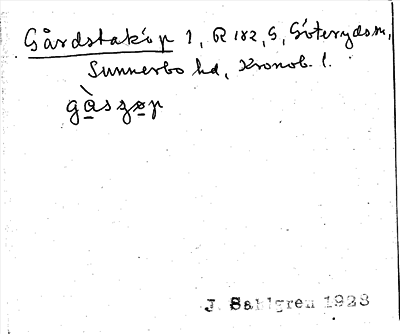 Gårdstakóp 1, R 182, S, Göteryds sn,
Sunnerbo hd, Kronob. l.
gàszøp
J. Sahlgren 1928